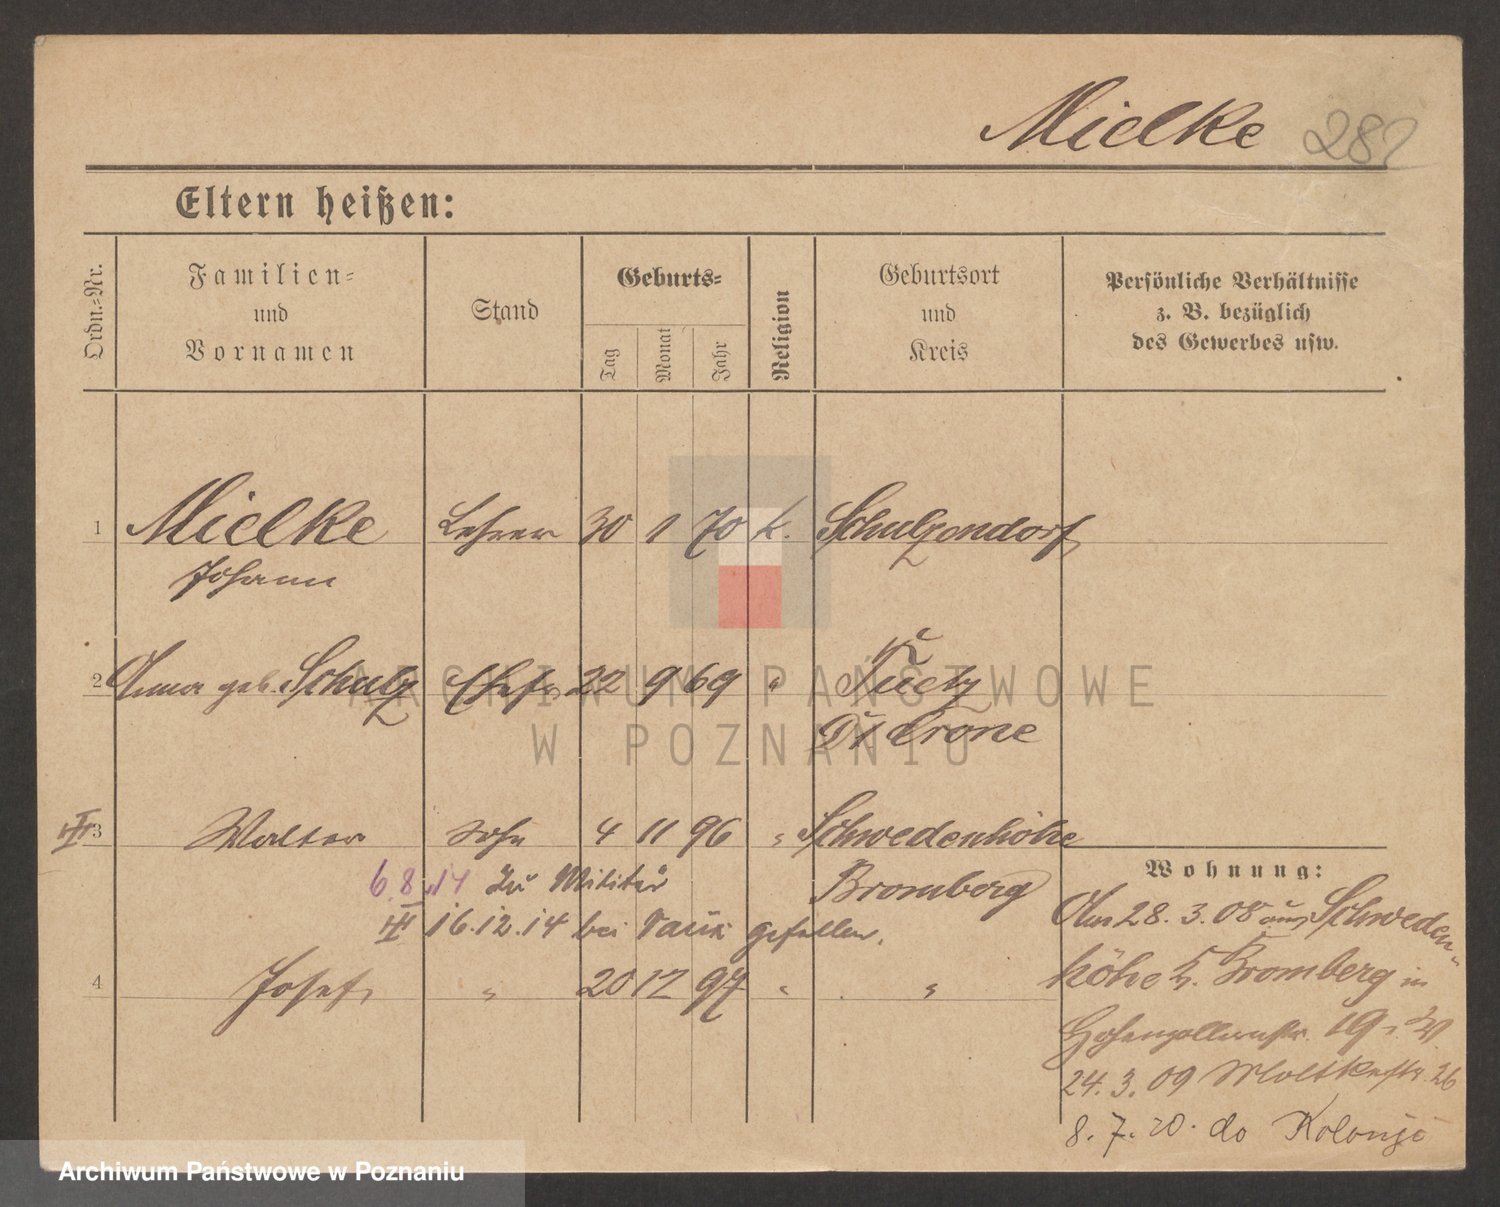 Mielke 282
Eltern heißen:
Ordn.-Nr.
Familien-
und
Vornamen
Stand
Geburts-
Tag
Monat
Jahr
Religion
Geburtsort
und
Kreis
Persönliche Verhältnisse
z. B. bezüglich
des Gewerbes usw.
1 Mielke Lehrer 30 1 70 k. Schulzendorf
Johann
2 Anna geb. Schulz Ehefr 22 9 69 "
Dt Crone
3 Walter Sohn 4 11 96 " Schwedenhöhe
Bromberg
6.8.14 Zu Militär
16.12.14 bei gefallen.
4 Josef " 20 12 97 " "
Wohnung:
28. 3. 08 aus Schweden-
höhe b. Bromberg in
Hohenzollernstr. 19
24. 3. 09 Moltkestr. 26
8. 7. 20. do Kolonji
ARCHIWUM PAŃSTWOWE
W POZNANIU
Archiwum Państwowe w Poznaniu